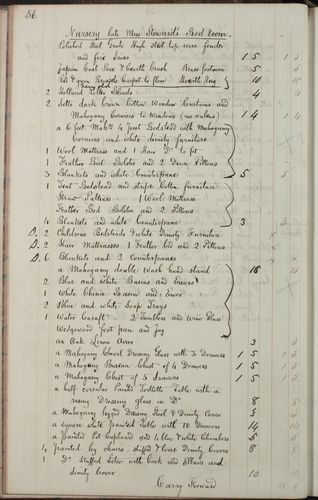 56
Nursery late Miss Steward's Bed Room.
Polished Steel Grate High Steel top wire fender
and fire Irons 1 5
Japan Coal Box & Hearth Brush Brass footman 5
Red & green Brussels Carpet to floor Hearth Rug 10
2 Holland Roller Blinds 4
2 Setts dark brown Cotton Window Curtains and
Mahogany Cornices to Windows (no valens) 1 4
a 6 feet 4 post Bedstead with Mahogany
Cornices and white dimity furniture
1 Wool Mattress and 1 Hair Do to fit
1 Feather Bed Bolster and 2 Down Pillows
3 Blankets and white Counterpane 5
1 Tent Bedstead and stripe Cotton furniture
Straw Palliass 1 Wool Mattress
Feather Bed Bolster and 2 Pillows
4 Blankets and white Counterpane 3
D. 2 Childrens Bedsteads & white Dimity Furniture
D. 2 Hair Mattrasses 1 Feather bed and 2 Pillows
D. 6 Blankets and 2 Counterpanes
a Mahogany double Wash hand stand
2 Blue and white Basins and Ewers
1 White China Basin and Ewer
2 Blue and white Soap Trays
1 Water Caraft 2 Tumblers and Wine Glass
Wedgewood foot pan and Jug
an Oak Linen Airer 3
a Mahogany Cheval Dressing Glass with 3 Drawers 1 5
a Mahogany Bureau Chest of 4 Drawers 1 5
a Mahogany Chest of 5 drawers 1 5
a half circular Painted Toilette Table with a
rising Dressing glass in Do 8
a Mahogany legged Dressing Stool & Dimity Cover 5
a square white painted Table with 10 Drawers 14
a painted Pot Cupboard and 4 blue & white Chambers 5
4 painted chairs stuffed & loose Dimity Covers 8
Do Stuffed Settee with Back and Elbows and
dimity Cover 10
Carry Forward